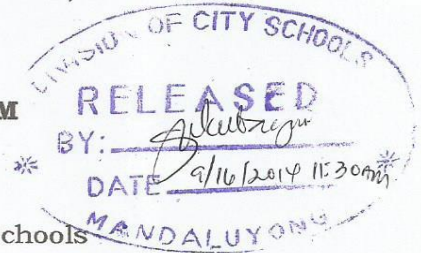 DIVISION OF CITY SCHOOLS
M
RELEASED
BY:
DATE 9/16/2014 11:30AM
chools
MANDALUYONG